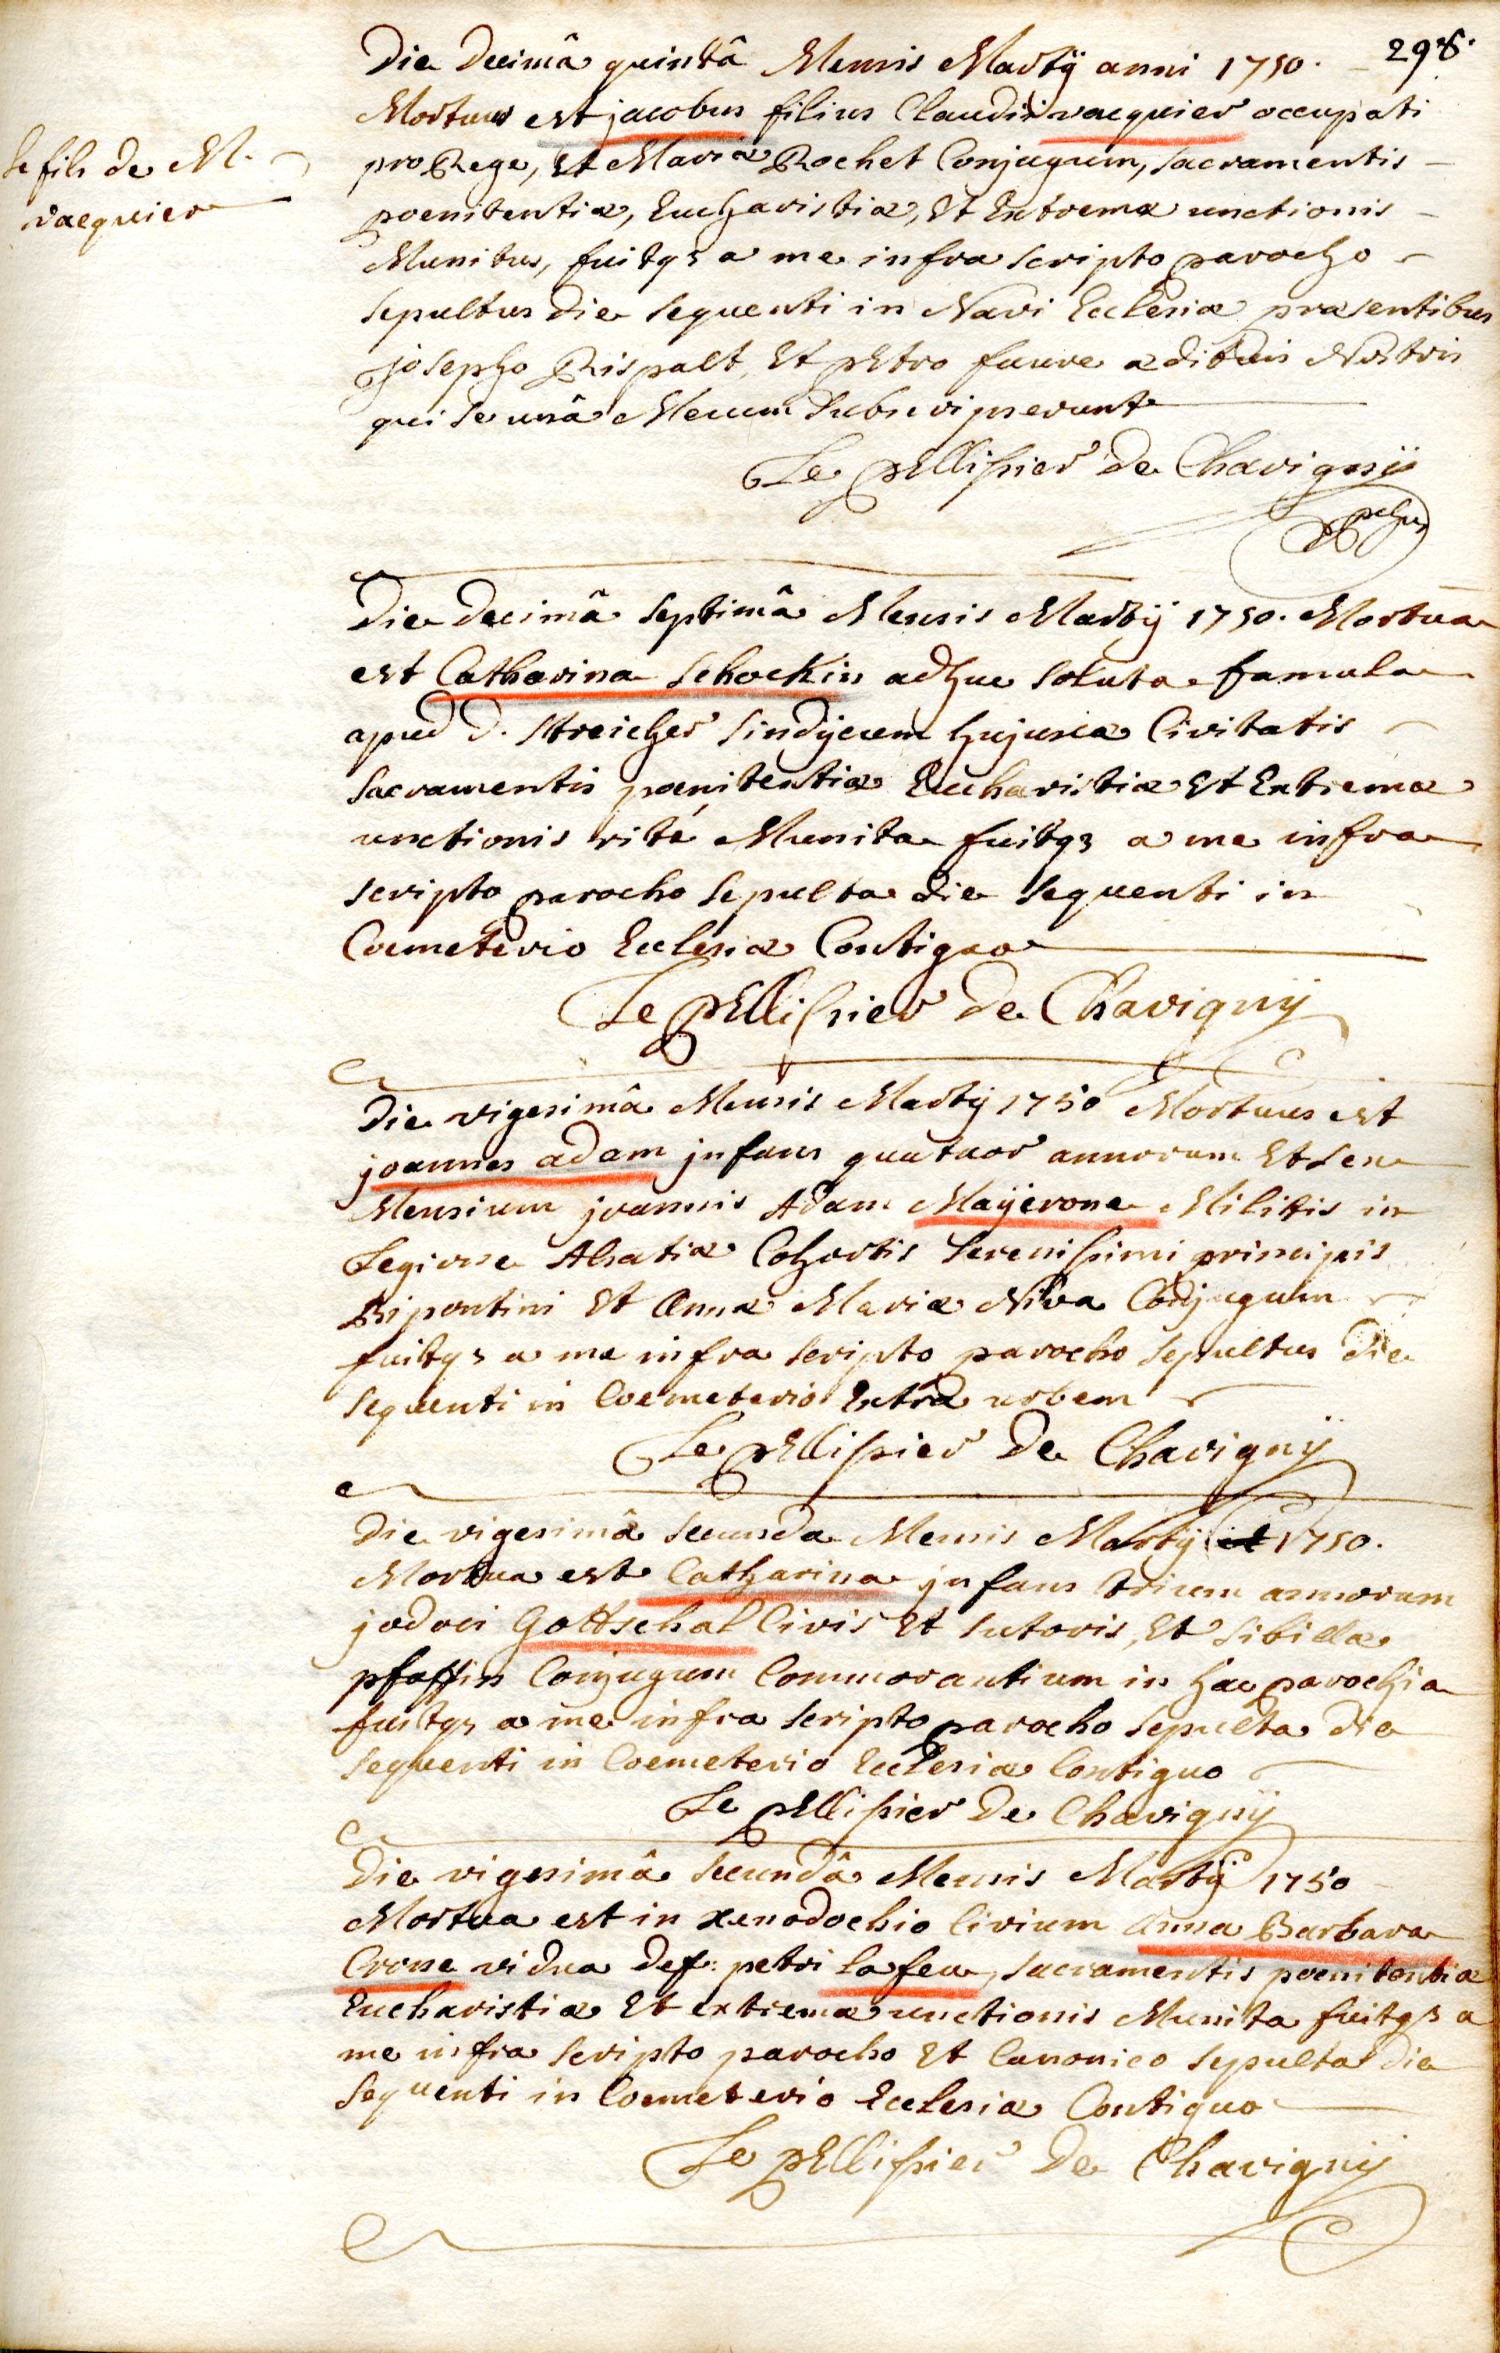 298.
Die Decimâ quintâ Mensis Martÿ anni 1750.
Mortuus est jacobus filius Claudii vacquier occupati
pro Rege, et Mariæ Rochet Conjugum, sacramentis
poenitentiæ, Eucharistiæ, Et Extremæ unctionis
Munitus, fuitq3 a me infra scripto parocho
sepultus die sequenti in Navi Ecclesiæ præsentibus
josepho Rispalt, Et pEtro faure ædituis Nostris
qui se unâ Mecum Subscripserunt
Le pEllissier de Chavignÿ
Le fils de M.
vacquier
Die Decimâ septimâ Mensis Martÿ 1750. Mortua
est Catharina Schockin adhuc soluta famula
apud D. Streicher Sindÿcum hujusce Civitatis
Sacramentis poenitentiæ Eucharistiæ Et Extremæ
unctionis rité Munita fuitq3 a me infra
scripto parocho sepulta die sequenti in
Coemeterio Ecclesiæ Contiguo
Le pEllissier de Chavignÿ
Die vigesimâ Mensis Martÿ 1750 Mortuus est
joannes adam jnfans quatuor annorum Et sex
Mensium joannis Adam Maÿerone Militis in
Legione Alsatiæ Cohortis serenissimi principis
Bipontini Et Annæ Mariæ Niva Conjugum
fuitq3 a me infra scripto parocho sepultus die
sequenti in Coemeterio Extra urbem
Le pEllissier De Chavignÿ
Die vigesimâ secunda Mensis Martÿ 1750.
Mortua est Catharina jnfans trium annorum
jodoci Gottschal Civis Et sutoris, Et Sibillæ
pfaffin Conjugum Commorantium in hac parochia
fuitq3 a me infra scripto parocho sepulta die
sequenti in Coemeterio Ecclesiæ Contiguo
Le pEllissier De Chavignÿ
Die vigesimâ secundâ Mensis Martÿ 1750
Mortua est in xenodochio Civium Anna Barbara
Crone vidua def: petri Lafeu, sacramentis poenitentiæ
Eucharistiæ Et extremæ unctionis Munita fuitq3 a
me infra scripto parocho Et Canonico sepulta die
sequenti in Coemeterio Ecclesiæ Contiguo
Le pEllissier De Chavignÿ